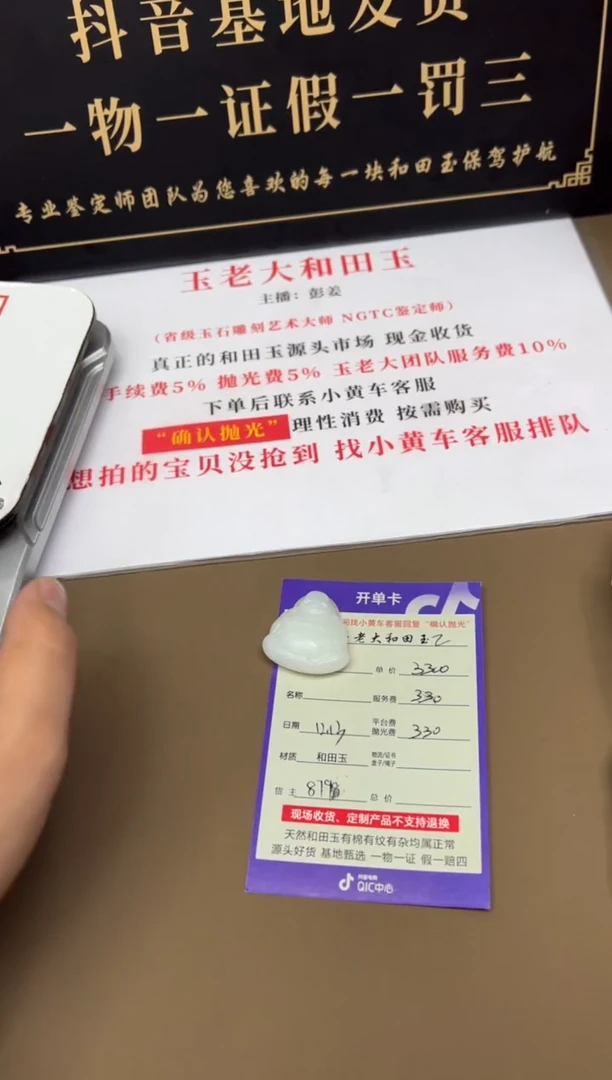 抖音基地发货
一物一证假一罚三
专业鉴定师团队为您喜欢的每一块和田玉保驾护航
玉老大和田玉
主播：彭姜
（省级玉石雕刻艺术大师 NGTC鉴定师）
真正的和田玉源头市场 现金收货
手续费5% 抛光费5% 玉老大团队服务费10%
下单后联系小黄车客服
“确认抛光” 理性消费 按需购买
想拍的宝贝没抢到 找小黄车客服排队
开单卡
找小黄车客服回复“确认抛光”
老大和田玉
单价 3300
名称 服务费 330
日期 平台费
抛光费 330
材质 和田玉 物流/证书
盒子/绳子
货主 总价
现场收货、定制产品不支持退换
天然和田玉有棉有纹有杂均属正常
源头好货 基地甄选 一物一证 假一赔四
抖音电商
QIC中心